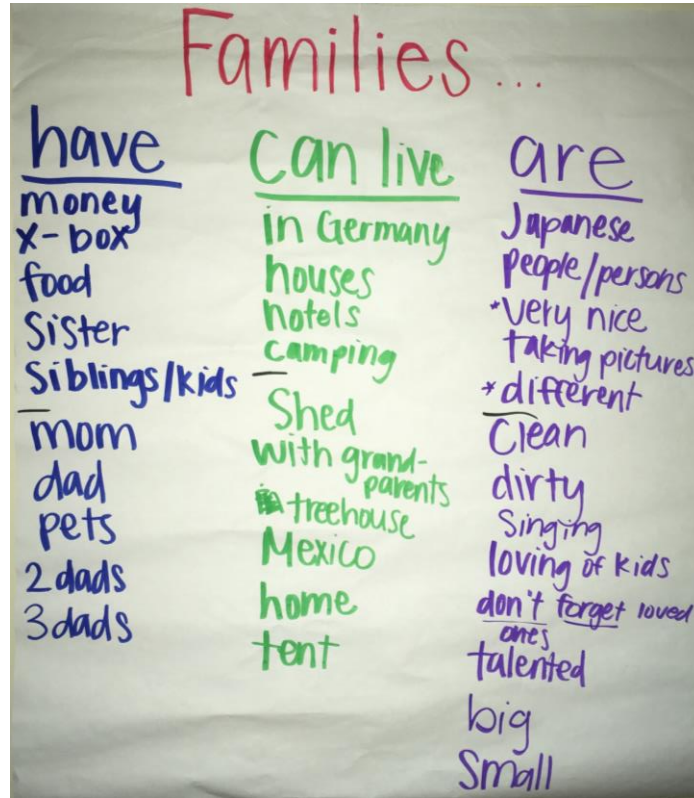 Families...
have
money
x-box
food
Sister
Siblings/kids
mom
dad
pets
2 dads
3 dads
can live
in Germany
houses
hotels
camping
Shed
with grand-
parents
treehouse
Mexico
home
tent
are
Japanese
people/persons
*very nice
taking pictures
*different
Clean
dirty
Singing
loving of kids
don't forget loved
ones
talented
big
Small